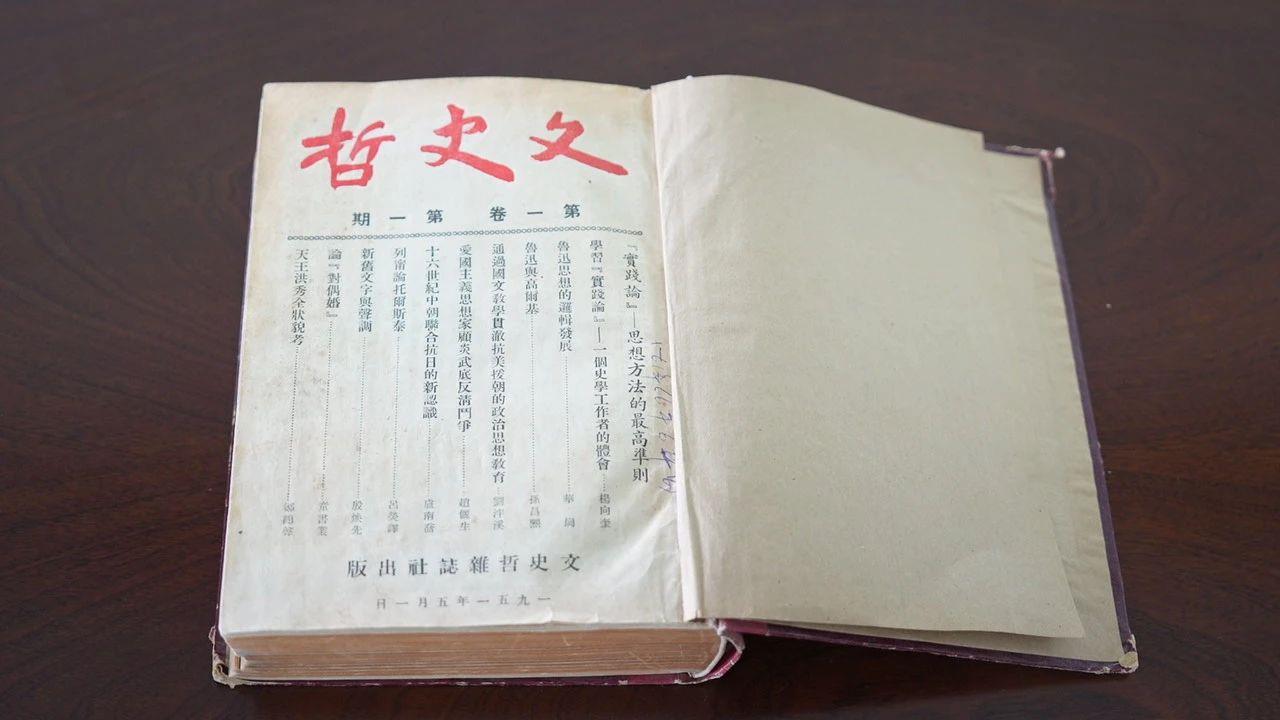 文史哲
第一卷 第一期
『實踐論』——思想方法的最高準則
學習『實踐論』——一個史學工作者的體會 楊向奎
魯迅思想的邏輯發展 華崗
魯迅與高爾基 孫昌熙
通過國文教學貫澈抗美援朝的政治思想教育 劉泮溪
愛國主義思想家顧炎武底反清鬥爭 趙儷生
十六世紀中朝聯合抗日的新認識 盧南喬
列甯論托爾斯泰 呂熒譯
新舊文字與聲調 殷煥先
論『對偶婚』 童書業
天王洪秀全狀貌考
文史哲雜誌社出版
一九五一年五月一日